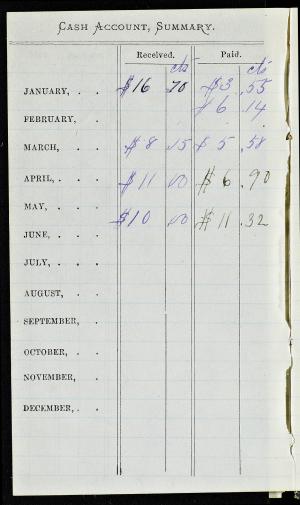 CASH ACCOUNT, SUMMARY.
Received. Paid.
cts cts
JANUARY, . . $16 70 $3 .55
$6 .14
FEBRUARY, .
MARCH, . . $8 15 $5 .58
APRIL, . . . $11 00 $6 .90
MAY, . . .
$10 00 $11 .32
JUNE, . . .
JULY, . . .
AUGUST, . .
SEPTEMBER, .
OCTOBER, . .
NOVEMBER, .
DECEMBER, . .